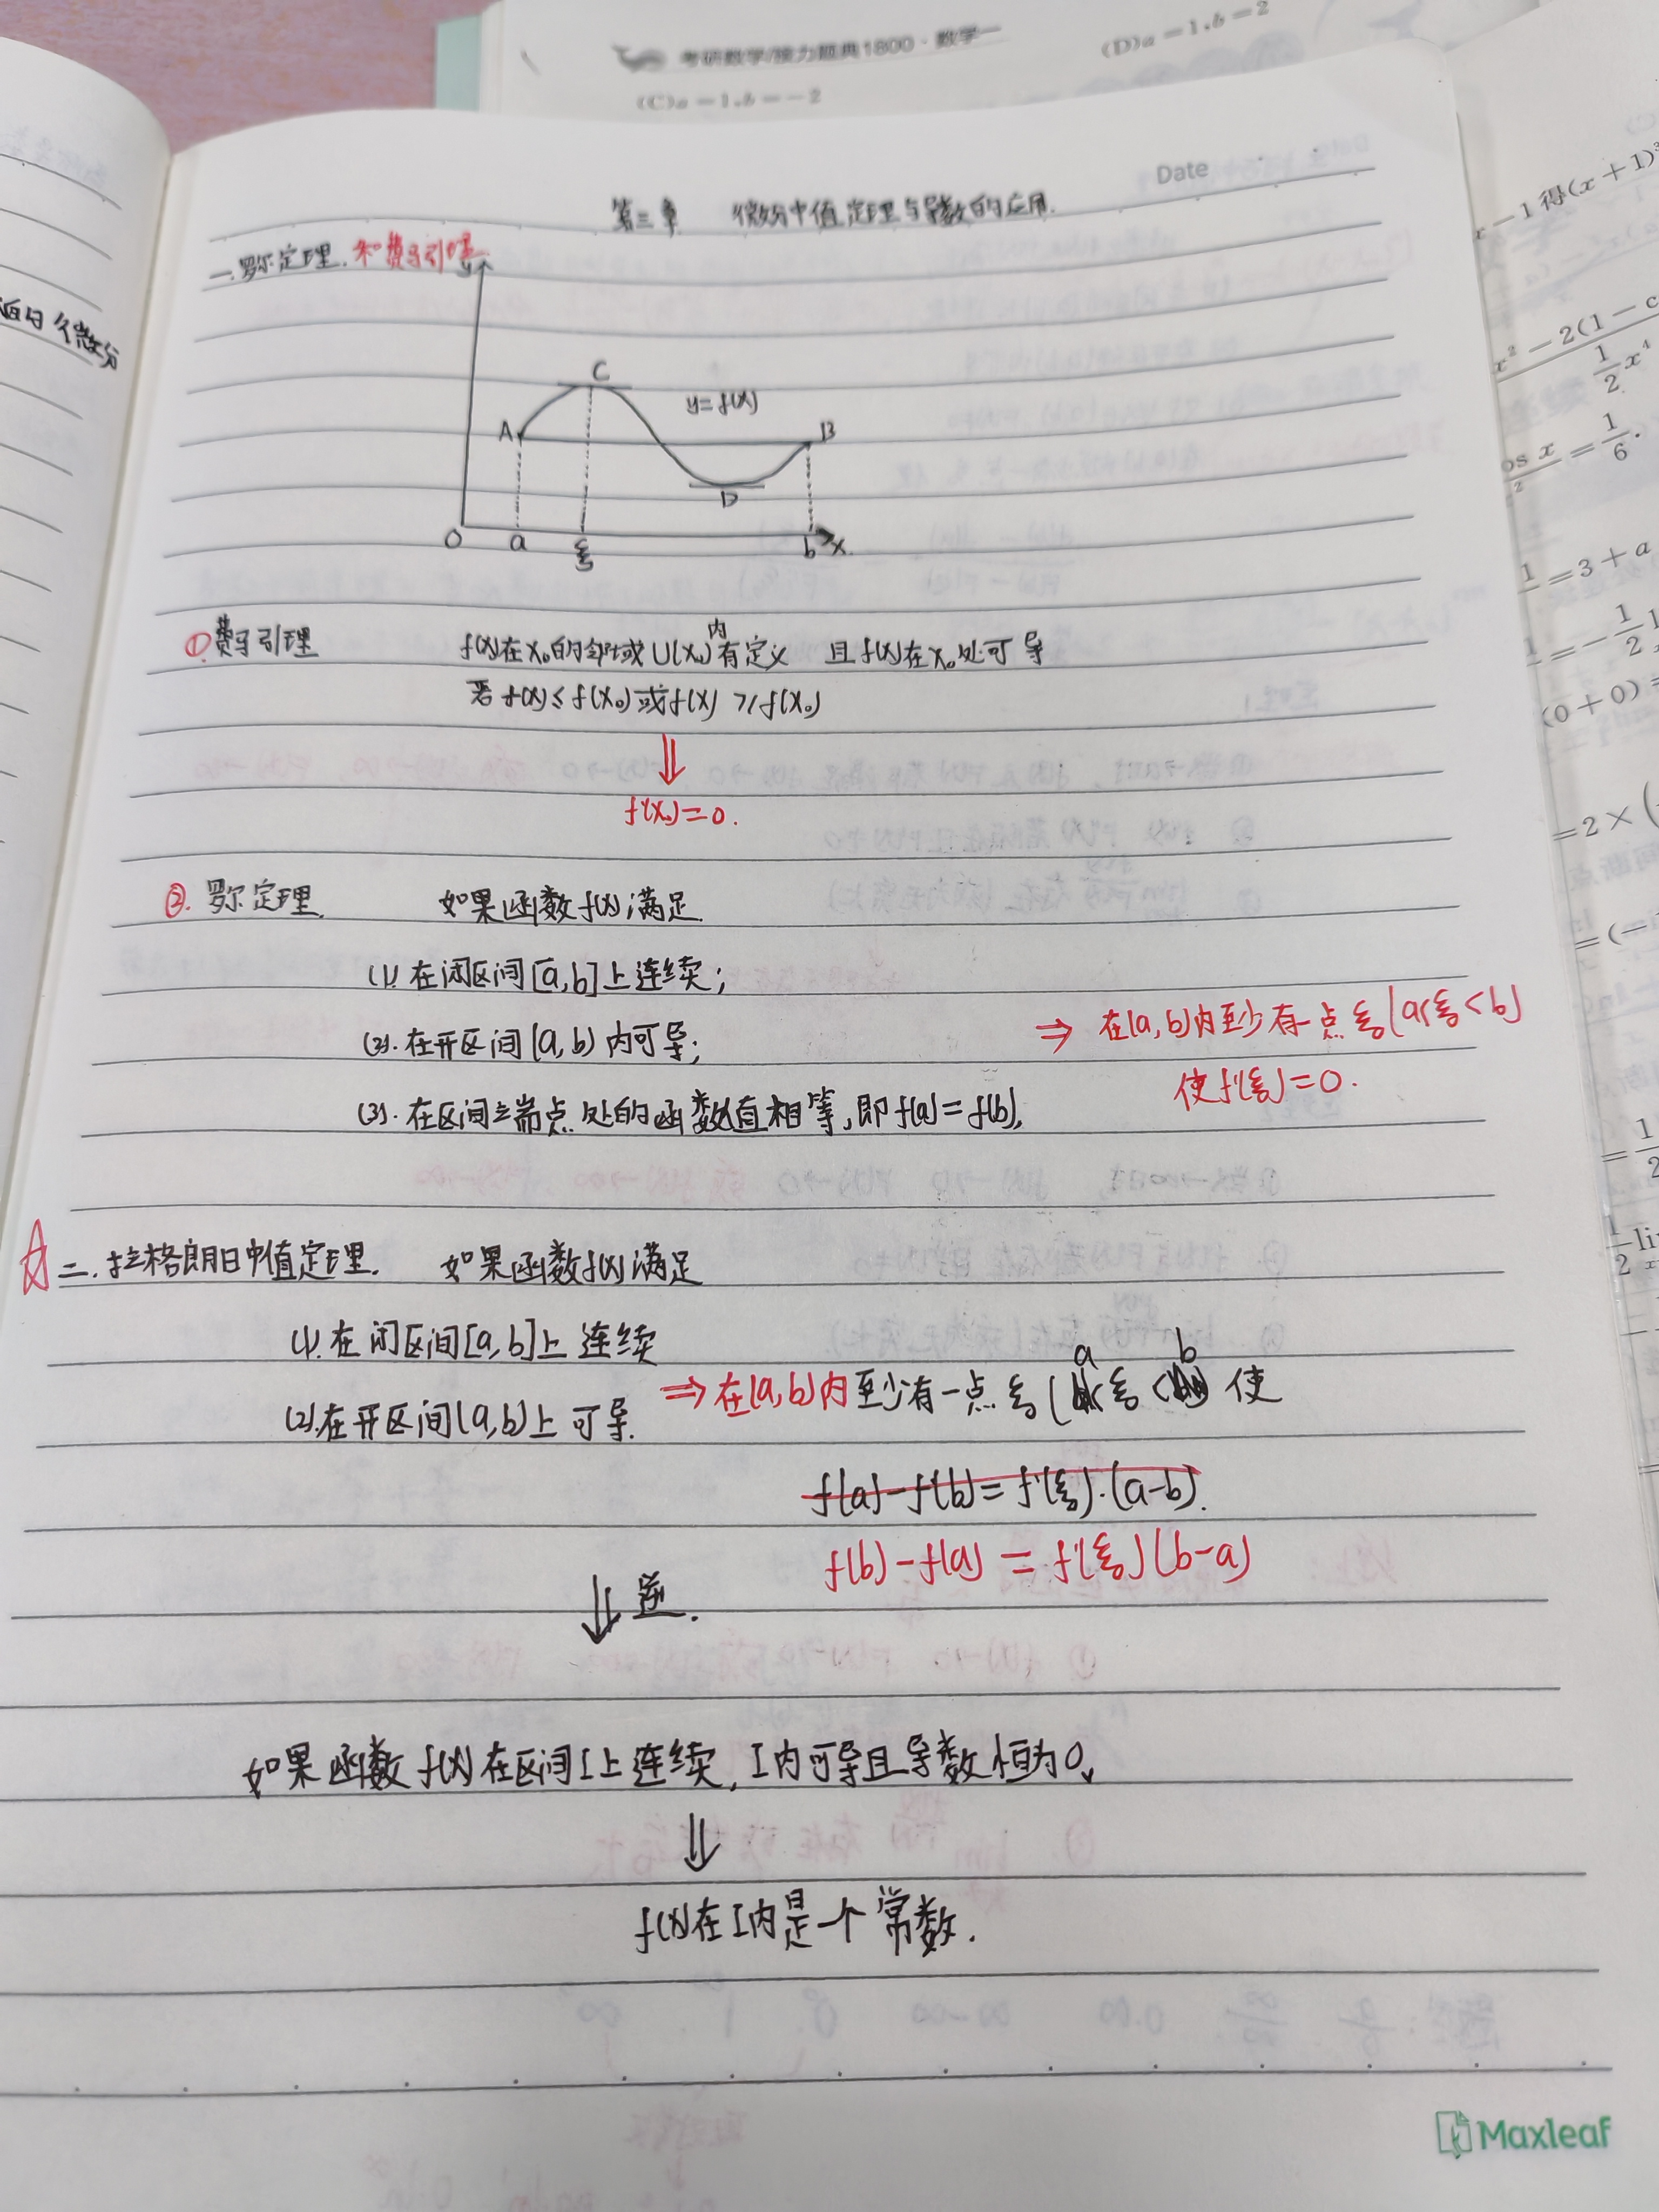 考研数学/接力题典1800·数学一
(D)a=1,b=2
(C)a=1,b=-2
Date
第三章 微分中值定理与导数的应用.
一.罗尔定理.和费马引理
y
C
y=f(x)
A
B
D
O a ξ b x
①费马引理 f(x)在x₀的邻域U(x₀)内有定义 且f(x)在x₀处可导
若f(x)≤f(x₀)或f(x)≥f(x₀)
⇓
f'(x₀)=0.
②.罗尔定理. 如果函数f(x)满足
(1).在闭区间[a,b]上连续;
(2).在开区间(a,b)内可导; ⇒ 在(a,b)内至少有一点ξ(a<ξ<b)
使f'(ξ)=0.
(3).在区间端点处的函数值相等,即f(a)=f(b),
☆二.拉格朗日中值定理. 如果函数f(x)满足
(1).在闭区间[a,b]上连续
(2).在开区间(a,b)上可导. ⇒在(a,b)内至少有一点ξ(a<ξ<b) 使
f(a)-f(b)=f'(ξ)·(a-b).
f(b)-f(a)=f'(ξ)(b-a)
⇓ 逆.
如果函数f(x)在区间I上连续,I内可导且导数恒为0,
⇓
f(x)在I内是一个常数.
Maxleaf
x-1得(x+1)
x²-2(1-c
1/2 x⁴
os x/² = 1/6.
=3+a
(0+0)=
=2×(
=(-